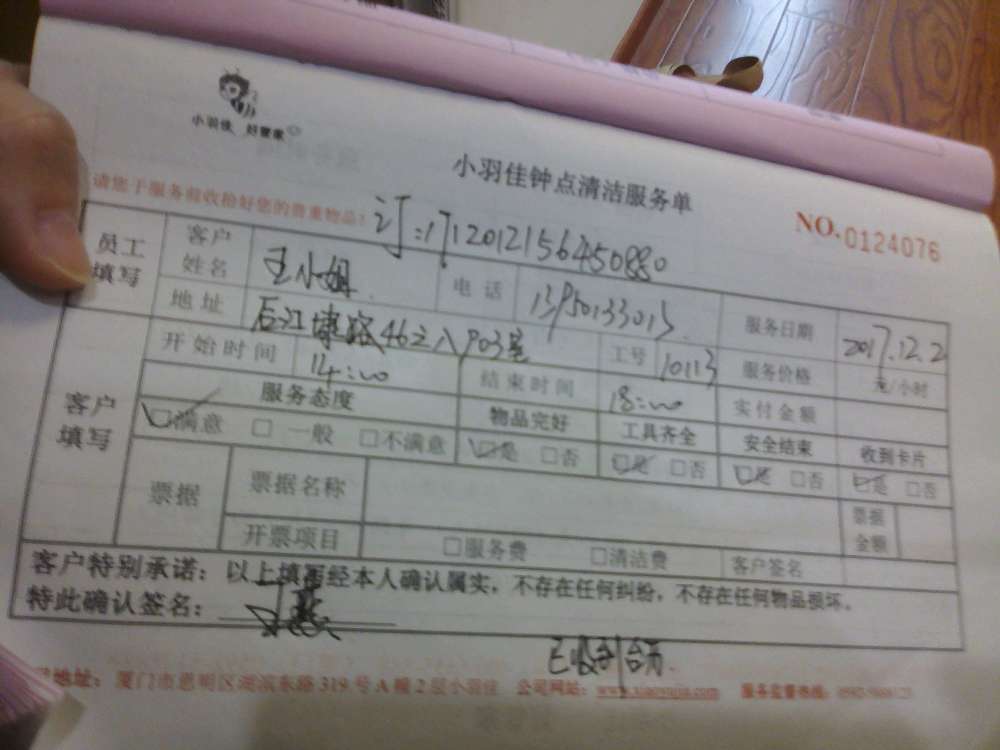 小羽佳 好管家
小羽佳钟点清洁服务单
请您于服务前收拾好您的贵重物品!
NO.0124076
订:1712012156450880
员工填写 客户姓名 王小姐 电话 13950133013 服务日期 2017.12.2
地址 后江埭路46之八903室 工号 10113 服务价格 元/小时
客户填写 开始时间 14:00 结束时间 18:00 实付金额
服务态度 物品完好 工具齐全 安全结束 收到卡片
☑满意 □一般 □不满意 ☑是 □否 ☑是 □否 ☑是 □否 ☑是 □否
票据 票据名称 票据金额
开票项目 □服务费 □清洁费 客户签名
客户特别承诺:以上填写经本人确认属实,不存在任何纠纷,不存在任何物品损坏。
特此确认签名:
地址:厦门市思明区湖滨东路319号A幢2层小羽佳 公司网站:www.xiaoyujia.com 服务监督热线: